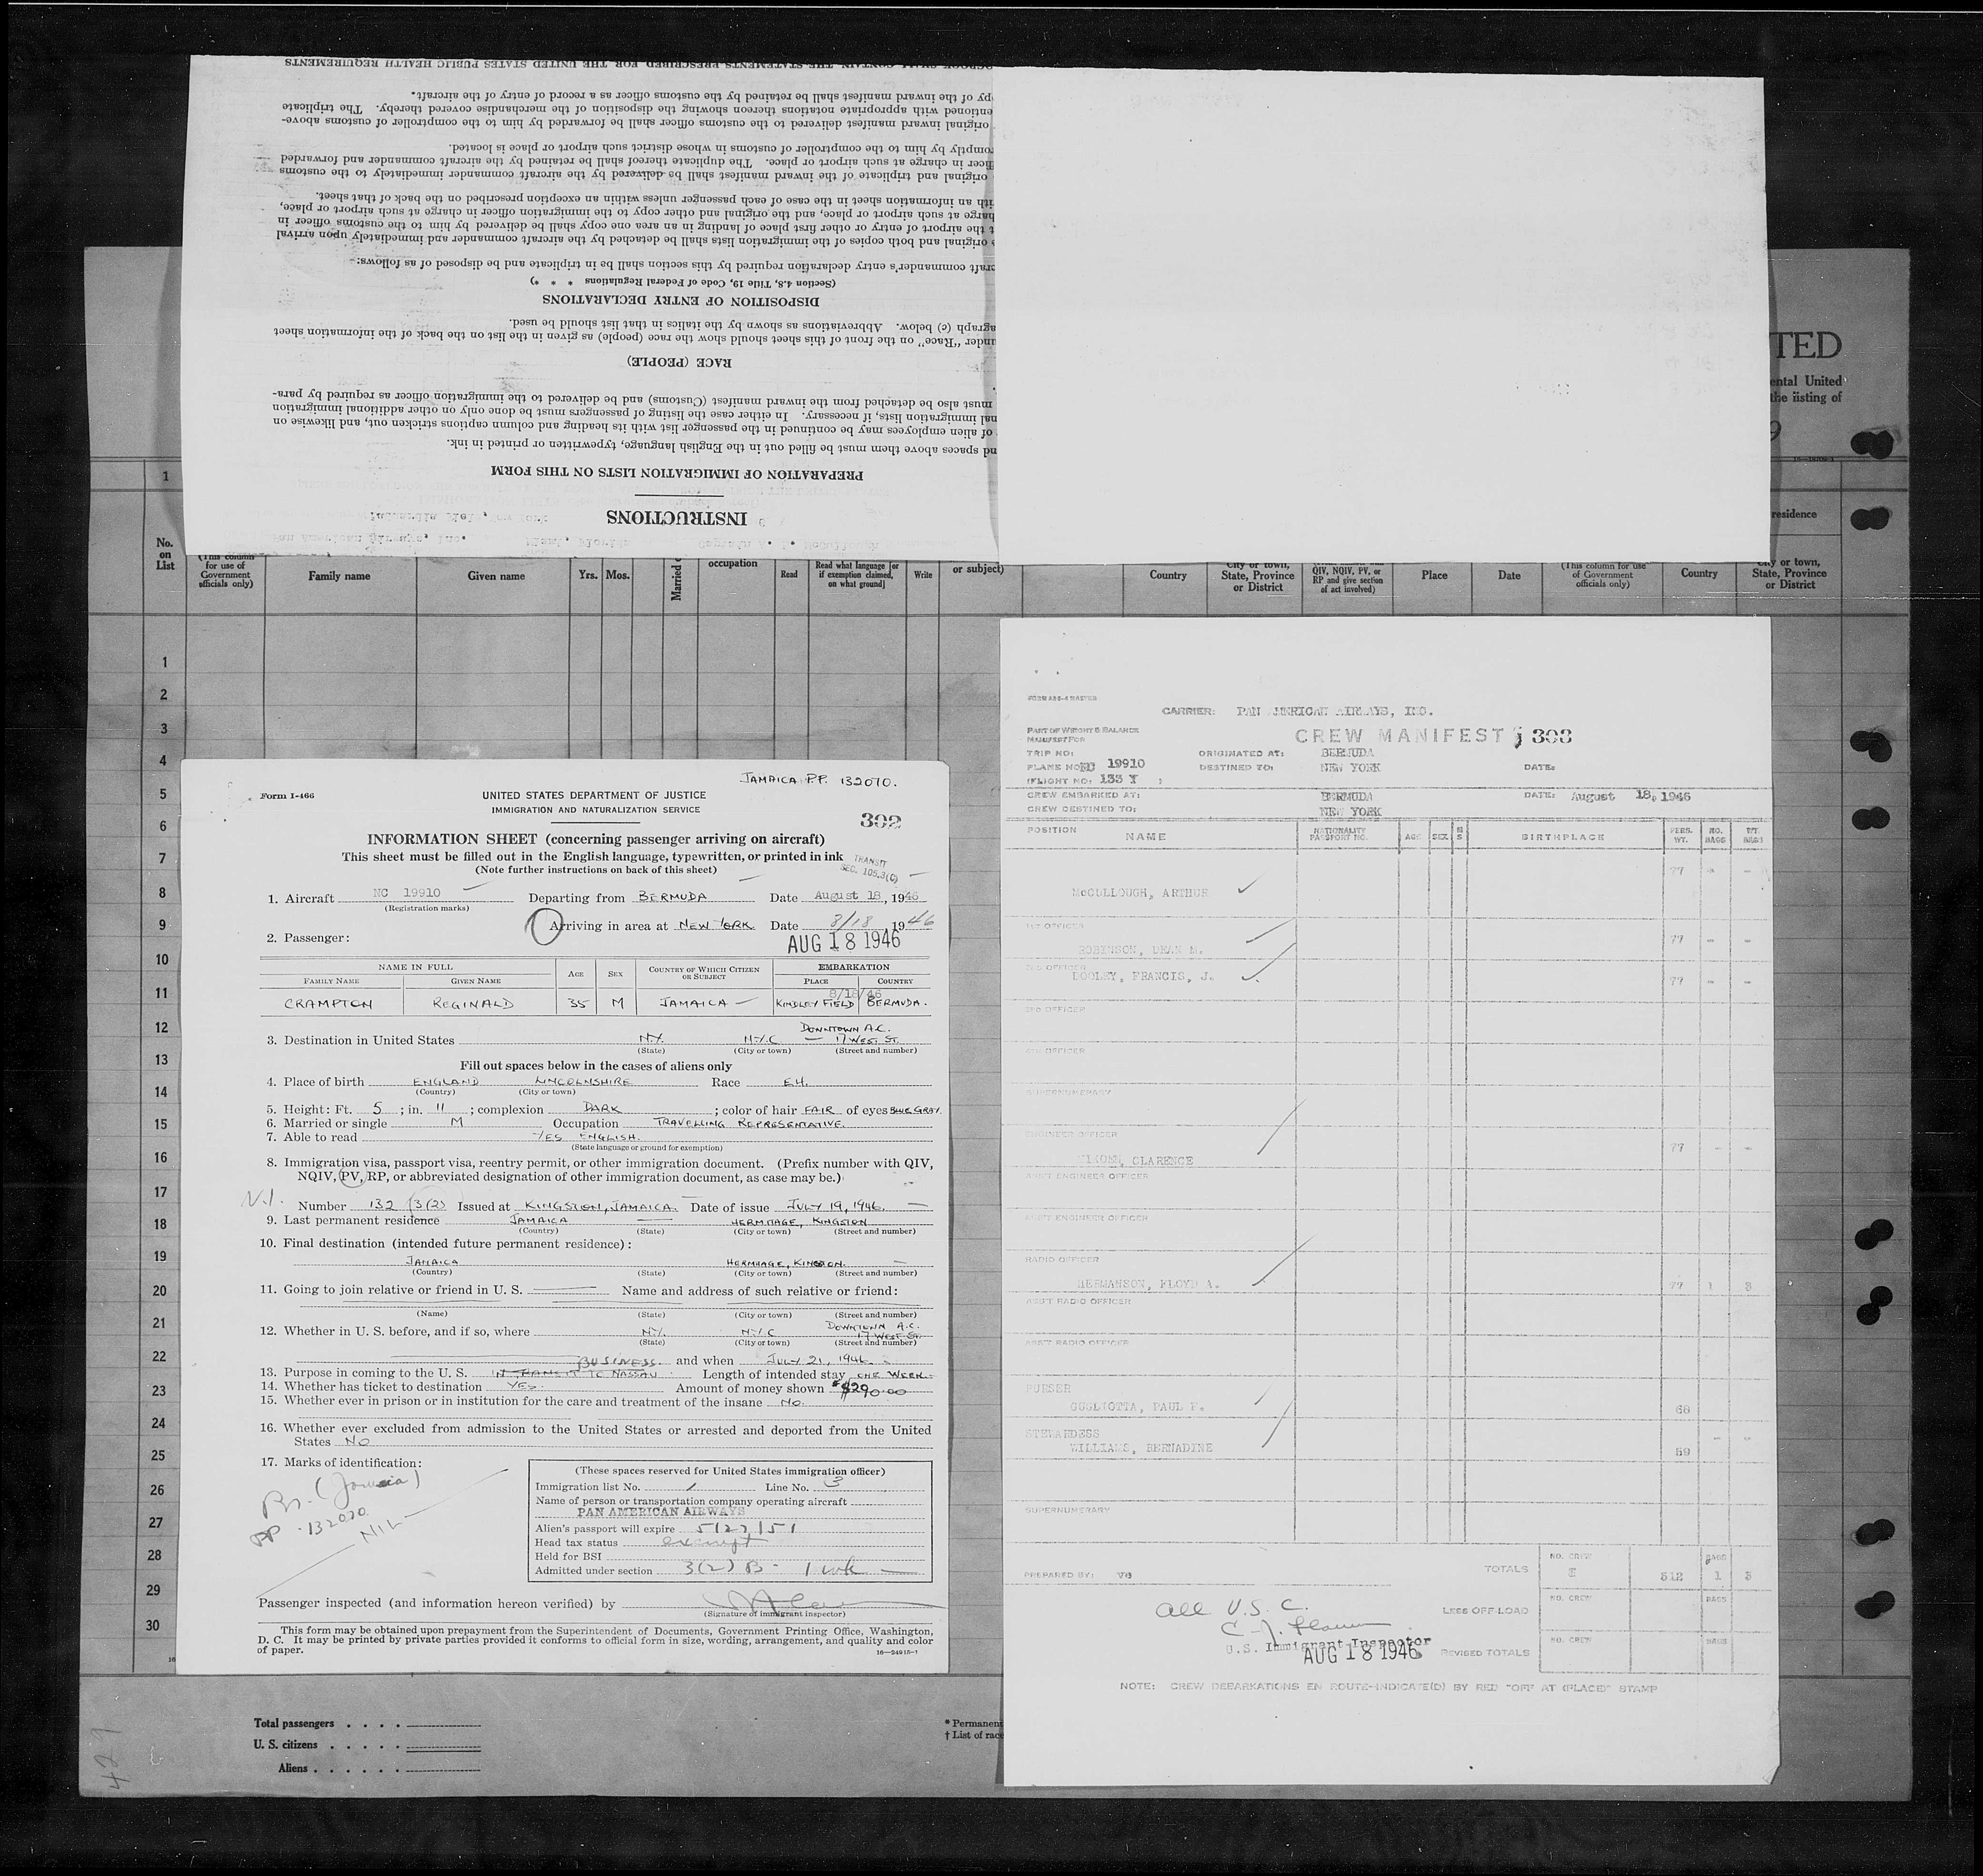 SHALL CONTAIN THE STATEMENTS PRESCRIBED FOR THE UNITED STATES PUBLIC HEALTH REQUIREMENTS
py of the inward manifest shall be retained by the customs officer as a record of entry of the aircraft.
entioned with appropriate notations thereon showing the disposition of the merchandise covered thereby. The triplicate
original inward manifest delivered to the customs officer shall be forwarded by him to the comptroller of customs above-
omptly by him to the comptroller of customs in whose district such airport or place is located.
ficer in charge at such airport or place. The duplicate thereof shall be retained by the aircraft commander and forwarded
original and triplicate of the inward manifest shall be delivered by the aircraft commander immediately to the customs
ith an information sheet in the case of each passenger unless within an exception prescribed on the back of that sheet.
harge at such airport or place, and the original and other copy to the immigration officer in charge at such airport or place,
t the airport of entry or other first place of landing in an area one copy shall be delivered by him to the customs officer in
e original and both copies of the immigration lists shall be detached by the aircraft commander and immediately upon arrival
raft commander's entry declaration required by this section shall be in triplicate and be disposed of as follows:—
(Section 4.8, Title 19, Code of Federal Regulations * * *)
DISPOSITION OF ENTRY DECLARATIONS
agraph (c) below. Abbreviations as shown by the italics in that list should be used.
under "Race" on the front of this sheet should show the race (people) as given in the list on the back of the information sheet
RACE (PEOPLE)
must also be detached from the inward manifest (Customs) and be delivered to the immigration officer as required by para-
nal immigration lists, if necessary. In either case the listing of passengers must be done only on other additional immigration
of alien employees may be continued in the passenger list with its heading and column captions stricken out, and likewise on
nd spaces above them must be filled out in the English language, typewritten or printed in ink.
PREPARATION OF IMMIGRATION LISTS ON THIS FORM
INSTRUCTIONS
TED
ental United
the listing of
residence
1
No. on List
(This column for use of Government officials only)
Family name
Given name
Yrs.
Mos.
Married
occupation
Read
Read what language [or if exemption claimed, on what ground]
Write
or subject)
Country
City or town, State, Province or District
QIV, NQIV, PV, or RP and give section of act involved)
Place
Date
(This column for use of Government officials only)
Country
City or town, State, Province or District
1
2
3
4
5
6
7
8
9
10
11
12
13
14
15
16
17
18
19
20
21
22
23
24
25
26
27
28
29
30
JAMAICA PP. 132070.
Form I-466
UNITED STATES DEPARTMENT OF JUSTICE
IMMIGRATION AND NATURALIZATION SERVICE
302
INFORMATION SHEET (concerning passenger arriving on aircraft)
This sheet must be filled out in the English language, typewritten, or printed in ink
(Note further instructions on back of this sheet)
TRANSIT
SEC. 105.3(C)
1. Aircraft NC 19910 Departing from BERMUDA Date August 18, 1946
(Registration marks)
Arriving in area at NEW YORK Date 8/18, 1946
2. Passenger:
AUG 18 1946
NAME IN FULL AGE SEX COUNTRY OF WHICH CITIZEN OR SUBJECT EMBARKATION
FAMILY NAME GIVEN NAME PLACE COUNTRY
8/18/46
CRAMPTON REGINALD 35 M JAMAICA KINDLEY FIELD BERMUDA.
DOWNTOWN A.C.
3. Destination in United States N.Y. N.Y.C 17 WEST ST.
(State) (City or town) (Street and number)
Fill out spaces below in the cases of aliens only
4. Place of birth ENGLAND LINCOLNSHIRE Race EH.
(Country) (City or town)
5. Height: Ft. 5; in. 11; complexion DARK; color of hair FAIR of eyes BLUE GRAY.
6. Married or single M Occupation TRAVELLING REPRESENTATIVE.
7. Able to read YES ENGLISH.
(State language or ground for exemption)
8. Immigration visa, passport visa, reentry permit, or other immigration document. (Prefix number with QIV,
NQIV, PV, RP, or abbreviated designation of other immigration document, as case may be.)
Number 132 (3(2) Issued at KINGSTON, JAMAICA. Date of issue JULY 19, 1946.
9. Last permanent residence JAMAICA HERMITAGE, KINGSTON
(Country) (State) (City or town) (Street and number)
10. Final destination (intended future permanent residence):
JAMAICA HERMITAGE, KINGSTON.
(Country) (State) (City or town) (Street and number)
11. Going to join relative or friend in U. S. Name and address of such relative or friend:
(Name) (State) (City or town) (Street and number)
DOWNTOWN A.C.
12. Whether in U. S. before, and if so, where N.Y. N.Y.C 17 WEST ST.
(State) (City or town) (Street and number)
and when JULY 21, 1946.
BUSINESS.
13. Purpose in coming to the U. S. IN TRANSIT TO NASSAU Length of intended stay ONE WEEK
14. Whether has ticket to destination YES. Amount of money shown $290.00
15. Whether ever in prison or in institution for the care and treatment of the insane NO.
16. Whether ever excluded from admission to the United States or arrested and deported from the United
States NO
17. Marks of identification:
Br. (Jamaica)
PP. 132070
NIL
(These spaces reserved for United States immigration officer)
Immigration list No. 1 Line No. 3
Name of person or transportation company operating aircraft
PAN AMERICAN AIRWAYS
Alien's passport will expire 5/27/51
Head tax status exempt
Held for BSI
Admitted under section 3(2) B - 1 wk
Passenger inspected (and information hereon verified) by
(Signature of immigrant inspector)
This form may be obtained upon prepayment from the Superintendent of Documents, Government Printing Office, Washington,
D. C. It may be printed by private parties provided it conforms to official form in size, wording, arrangement, and quality and color
of paper.
16—24915-1
CARRIER: PAN AMERICAN AIRWAYS, INC.
PART OF WEIGHT & BALANCE
MANIFEST FOR
CREW MANIFEST 303
TRIP NO: ORIGINATED AT: BERMUDA
PLANE NO: NC 19910 DESTINED TO: NEW YORK DATE:
(FLIGHT NO: 133 Y )
CREW EMBARKED AT: BERMUDA DATE: August 18, 1946
CREW DESTINED TO: NEW YORK
POSITION NAME NATIONALITY PASSPORT NO. AGE SEX M S BIRTHPLACE PERS. WT. NO. BAGS WT. BAGS
77 - -
McCULLOUGH, ARTHUR
1ST OFFICER
ROBINSON, DEAN M. 77 - -
2ND OFFICER
DOOLEY, FRANCIS, J. 77 - -
3RD OFFICER
4TH OFFICER
SUPERNUMERARY
ENGINEER OFFICER
CLARENCE 77 - -
ASS'T ENGINEER OFFICER
ASS'T ENGINEER OFFICER
RADIO OFFICER
HERMANSON, FLOYD A. 77 1 3
ASS'T RADIO OFFICER
ASS'T RADIO OFFICER
PURSER
GUGLIOTTA, PAUL F. 68
STEWARDESS
WILLIAMS, BERNADINE 59
SUPERNUMERARY
PREPARED BY: VG TOTALS NO. CREW 512 BAGS 1 3
All U.S.C. LESS OFF-LOAD NO. CREW BAGS
U.S. Immigrant Inspector
AUG 18 1946 REVISED TOTALS NO. CREW BAGS
NOTE: CREW DEBARKATIONS EN ROUTE-INDICATE(D) BY RED "OFF AT (PLACE)" STAMP
Total passengers
U. S. citizens
Aliens
* Permanen
† List of race